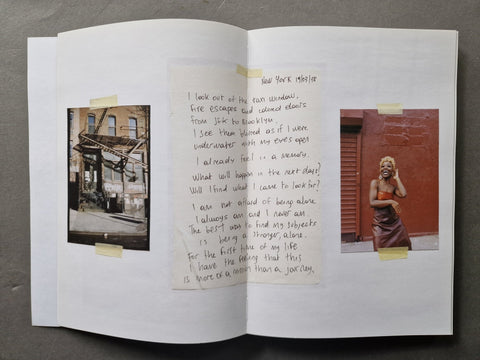 New York 19/07/18
I look out of the taxi window.
Fire escapes and colored doors
from JFK to Brooklyn.
I see them blurred as if I were
underwater with my eyes open
I already feel in a memory.
What will happen in the next days?
Will I find what I came to look for?
I am not afraid of being alone
I always am and I never am
The best way to find my subjects
is being a stranger, alone.
For the first time of my life
I have the feeling that this
is more of a mission than a journey.